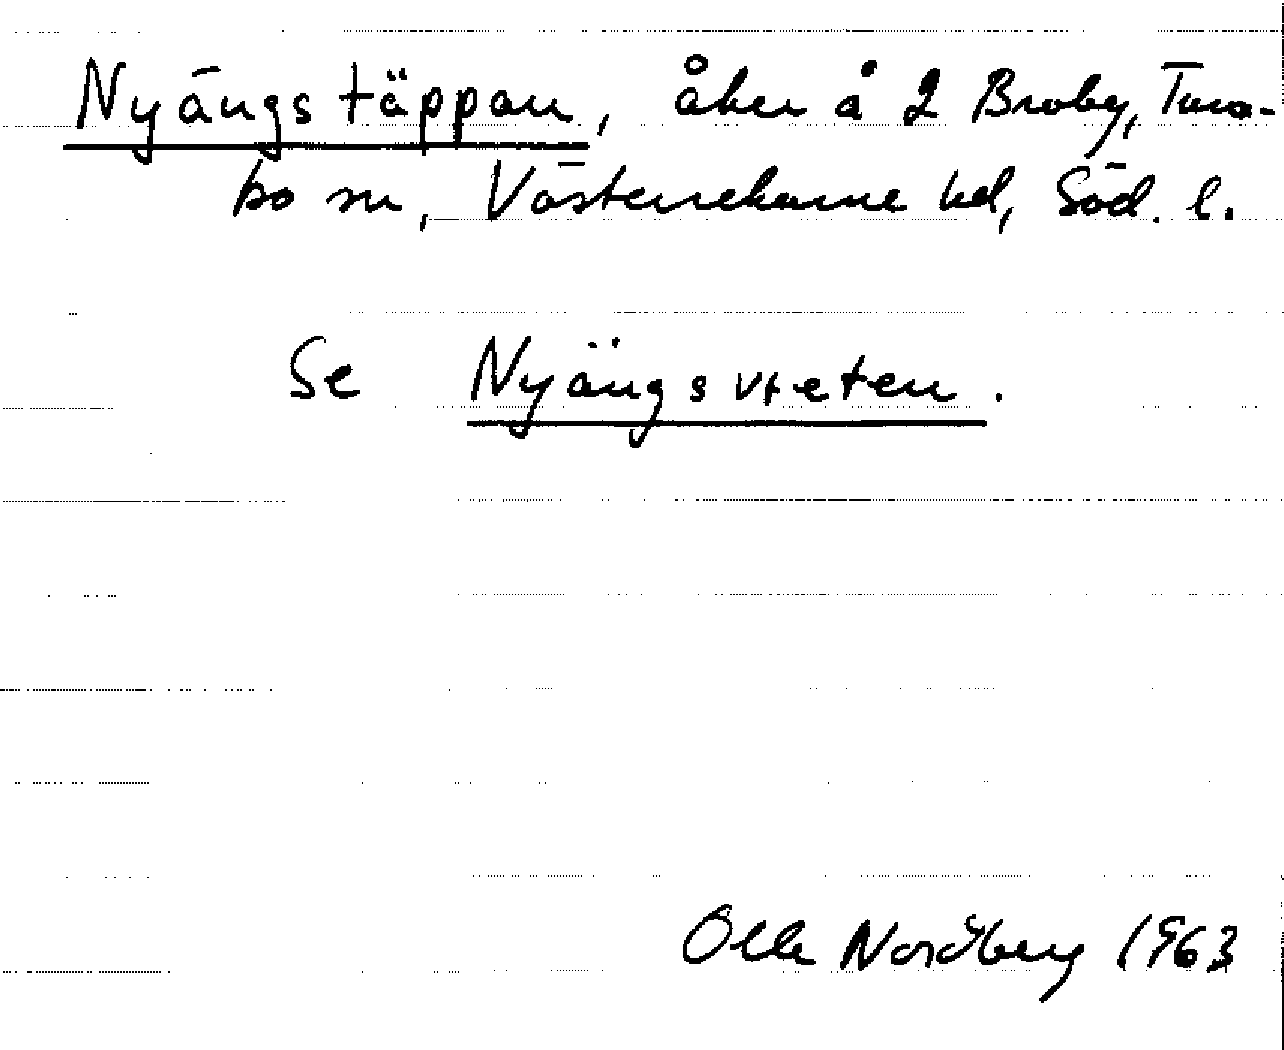 Nyängstäppan, åker å 2 Broby, Tuna-
bo sn, Västerrekarne hd, Söd. l.
Se Nyängsvreten.
Olle Nordberg 1963